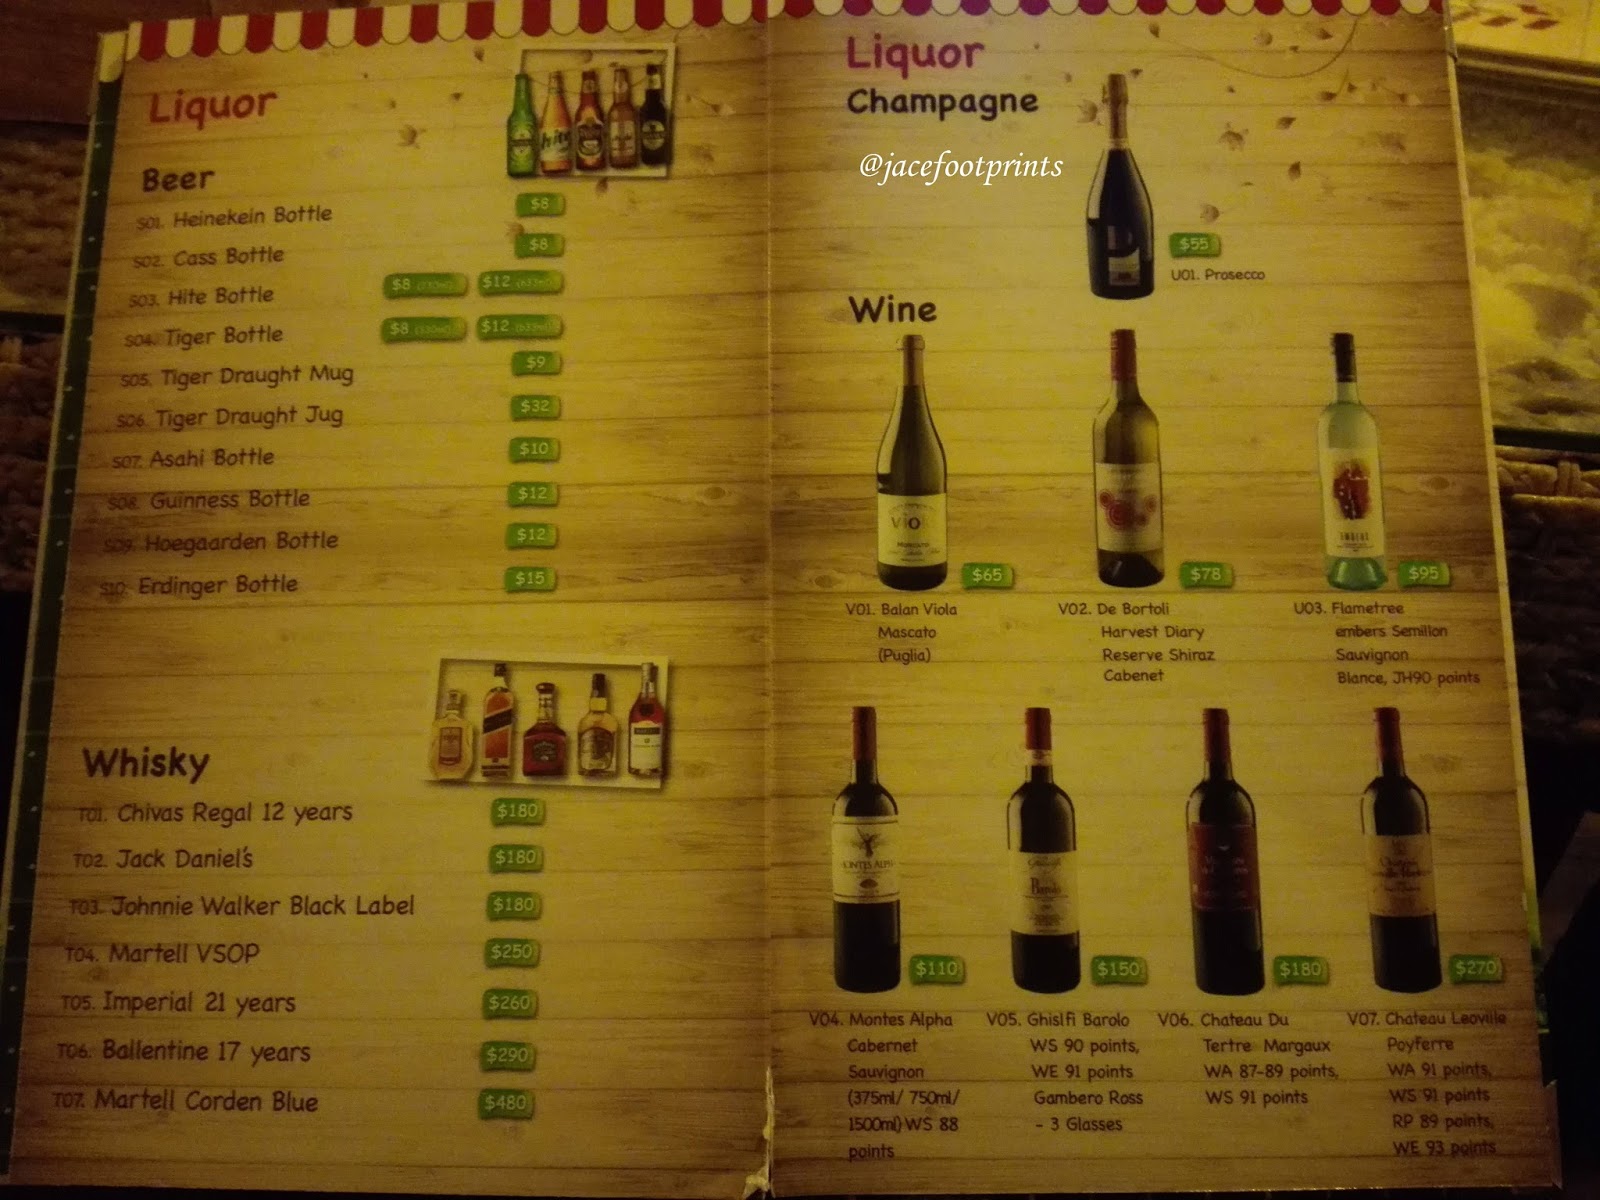 Liquor
Beer
S01. Heinekein Bottle $8
S02. Cass Bottle $8
S03. Hite Bottle $8 (330ml) $12 (633ml)
S04. Tiger Bottle $8 (330ml) $12 (633ml)
S05. Tiger Draught Mug $9
S06. Tiger Draught Jug $32
S07. Asahi Bottle $10
S08. Guinness Bottle $12
S09. Hoegaarden Bottle $12
S10. Erdinger Bottle $15
Whisky
T01. Chivas Regal 12 years $180
T02. Jack Daniel's $180
T03. Johnnie Walker Black Label $180
T04. Martell VSOP $250
T05. Imperial 21 years $260
T06. Ballentine 17 years $290
T07. Martell Corden Blue $480
Liquor
Champagne
@jacefootprints
$55
U01. Prosecco
Wine
$65
V01. Balan Viola
Mascato
(Puglia)
$78
V02. De Bortoli
Harvest Diary
Reserve Shiraz
Cabenet
$95
U03. Flametree
embers Semillon
Sauvignon
Blance, JH90 points
MONTES ALPHA
$110
V04. Montes Alpha
Cabernet
Sauvignon
(375ml/ 750ml/
1500ml) WS 88
points
Barolo
$150
V05. Ghislfi Barolo
WS 90 points,
WE 91 points
Gambero Ross
- 3 Glasses
$180
V06. Chateau Du
Tertre Margaux
WA 87-89 points,
WS 91 points
$270
V07. Chateau Leoville
Poyferre
WA 91 points,
WS 91 points
RP 89 points,
WE 93 points